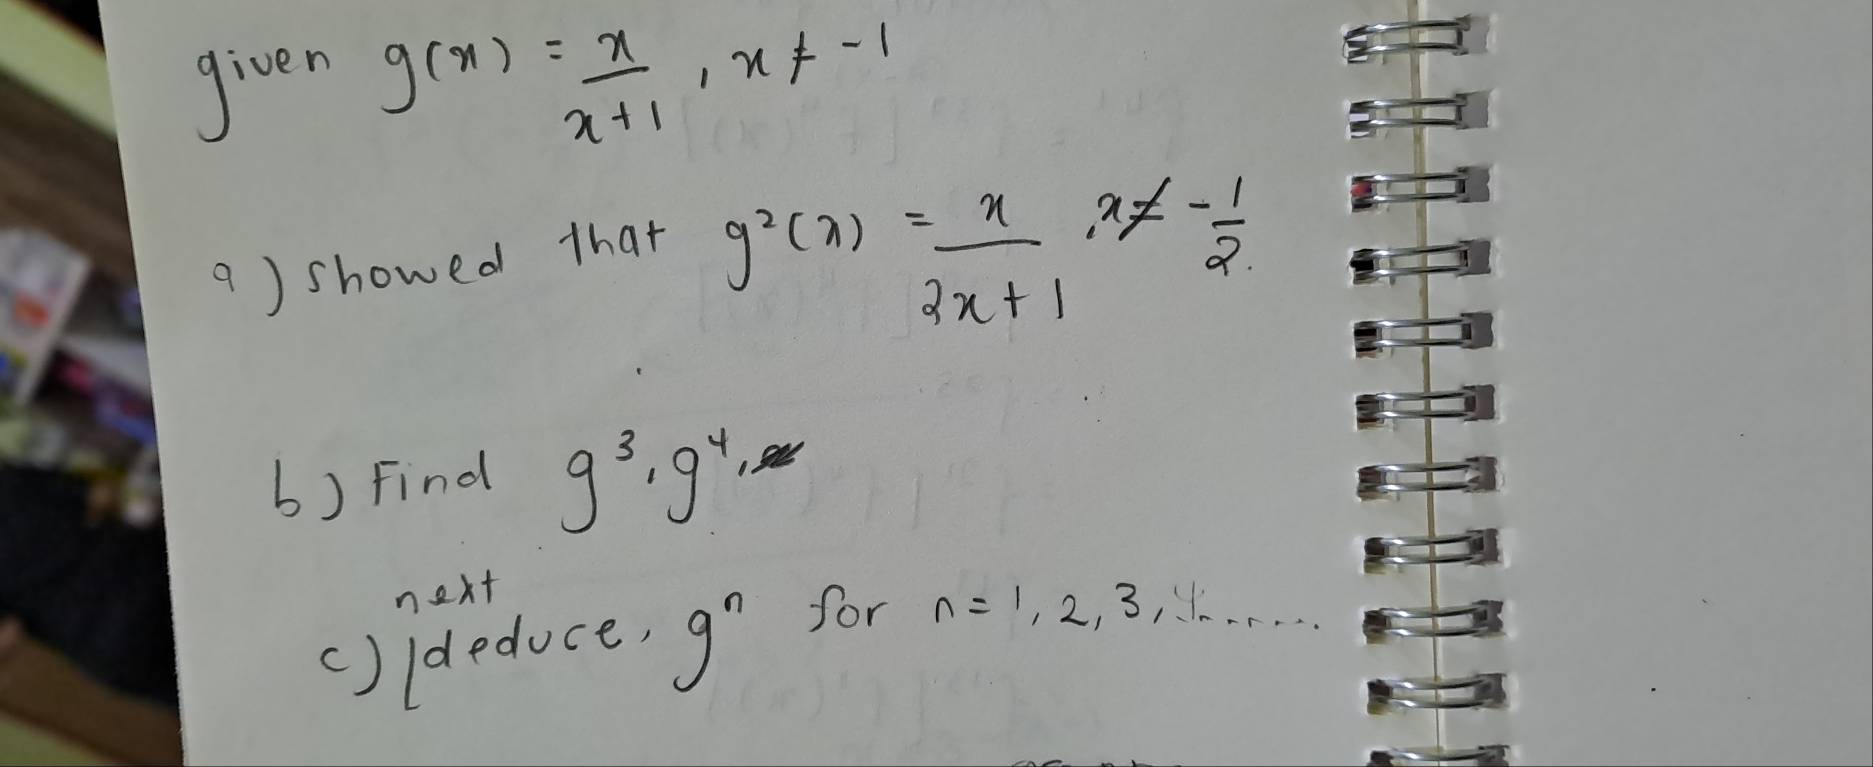 given g(x) = x/(x+1), x ≠ -1
a) showed that g²(x) = x/(2x+1), x ≠ -1/2.
b) Find g³, g⁴,
next
c) deduce, gⁿ for n = 1, 2, 3, 4.......